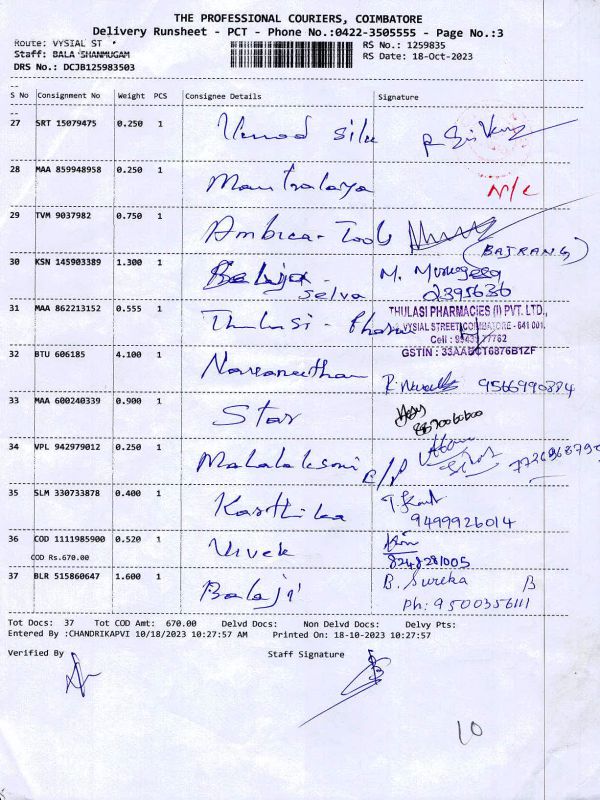 THE PROFESSIONAL COURIERS, COIMBATORE
Delivery Runsheet - PCT - Phone No.:0422-3505555 - Page No.:3
Route: VYSIAL ST
RS No.: 1259835
Staff: BALA SHANMUGAM
RS Date: 18-Oct-2023
DRS No.: DCJB125983503
S No Consignment No Weight PCS Consignee Details Signature
27 SRT 15079475 0.250 1
28 MAA 859948958 0.250 1 Mantralaya N/C
29 TVM 9037982 0.750 1 Ambica - Tools
(BAJRANG)
30 KSN 145903389 1.300 1 Balaji - Selva M. Murugesa
2395636
31 MAA 862213152 0.555 1 Thulasi - Pharma
THULASI PHARMACIES (I) PVT. LTD.,
VYSIAL STREET, COIMBATORE - 641 001.
Cell : 77762
GSTIN : 33AABCT6876B1ZF
32 BTU 606185 4.100 1 Navaneethan 9566990884
33 MAA 600240339 0.900 1 Star
34 VPL 942979012 0.250 1 Mahalaksmi
35 SLM 330733878 0.400 1 Karthika
9499926014
36 COD 1111985900 0.520 1 Vivek
COD Rs.670.00
8248281005
37 BLR 515860647 1.600 1 Balaji B. Sureka B
Ph: 9500356111
Tot Docs: 37 Tot COD Amt: 670.00 Delvd Docs: Non Delvd Docs: Delvy Pts:
Entered By :CHANDRIKAPVI 10/18/2023 10:27:57 AM Printed On: 18-10-2023 10:27:57
Verified By Staff Signature
10